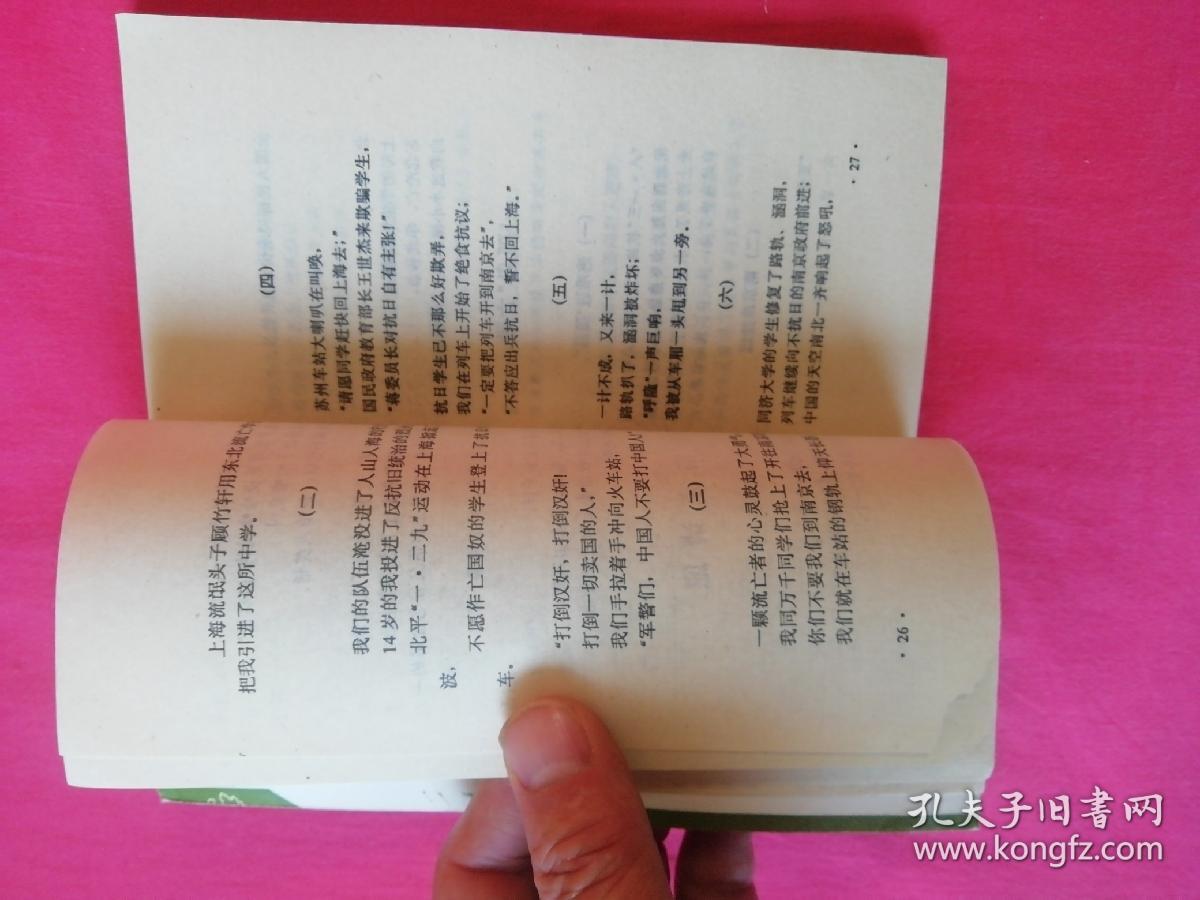 上海流氓头子顾竹轩用东北流亡
把我引进了这所中学。
(二)
我们的队伍淹没进了人山人海的
14岁的我投进了反抗旧统治的
北平“一·二九”运动在上海
波，
不愿作亡国奴的学生登上了
车。
“打倒汉奸，打倒汉奸！
打倒一切卖国的人，”
我们手拉着手冲向火车站，
“军警们，中国人不要打中国人
(三)
一颗流亡者的心灵鼓起了大
我同万千同学们抢上了开往南
你们不要我们到南京去，
我们就在车站的钢轨上仰天
·26·
(四)
苏州车站大喇叭在叫唤，
“请愿同学赶快回上海去；”
国民政府教育部长王世杰来欺骗学生，
“蒋委员长对抗日自有主张！”
抗日学生已不那么好欺弄，
我们在列车上开始了绝食抗议；
“一定要把列车开到南京去”，
“不答应出兵抗日，誓不回上海。”
(五)
一计不成，又来一计，
路轨扒了，涵洞被炸坏；
“呼隆”一声巨响，
我被从车厢一头甩到另一旁。
(六)
同济大学的学生修复了路轨、涵洞，
列车继续向不抗日的南京政府前进；
中国的天空南北一齐响起了怒吼，
·27·
孔夫子旧书网
www.kongfz.com